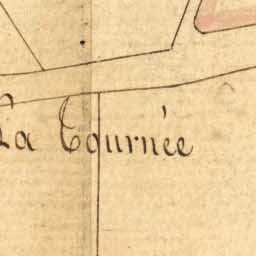 La Tournée